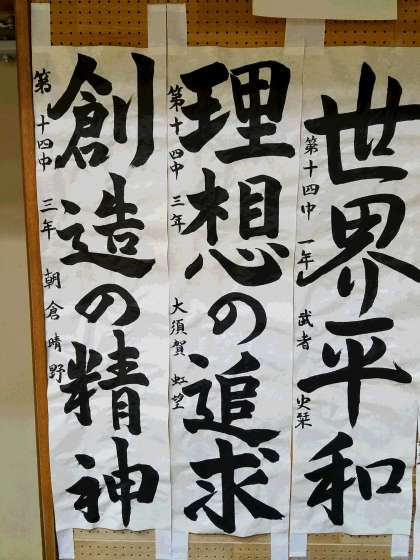 世界平和
第十四中 一年 武者 史栞
理想の追求
第十四中 三年 大須賀 虹望
創造の精神
第十四中 三年 朝倉 晴野